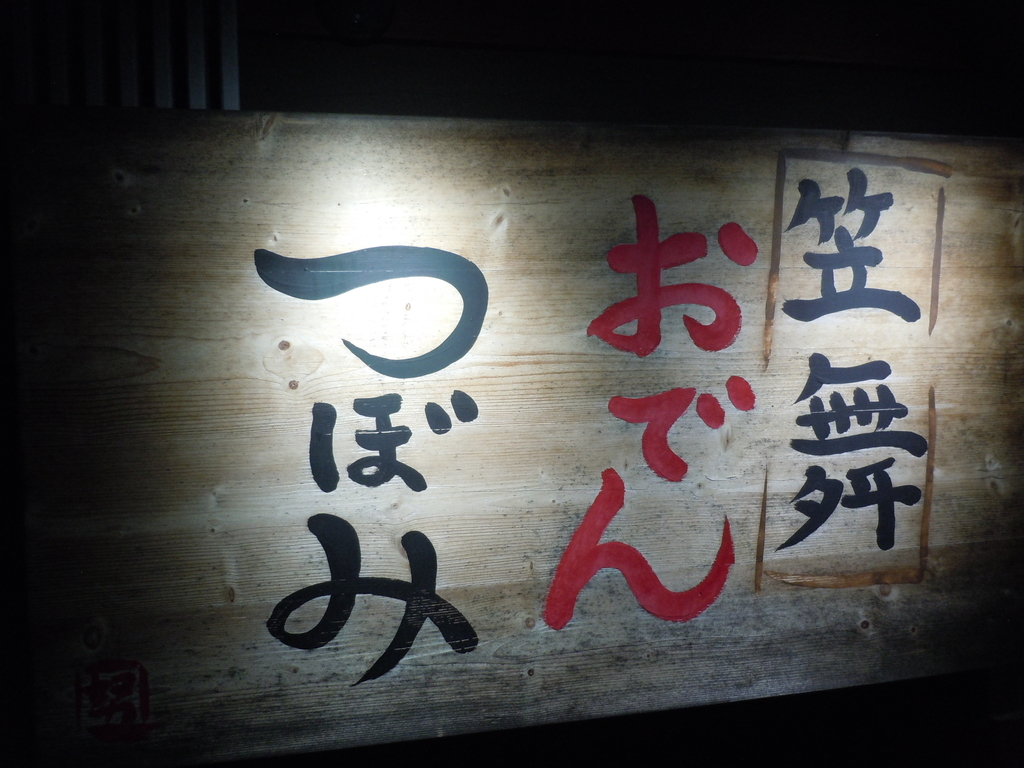 笠舞
おでん
つぼみ